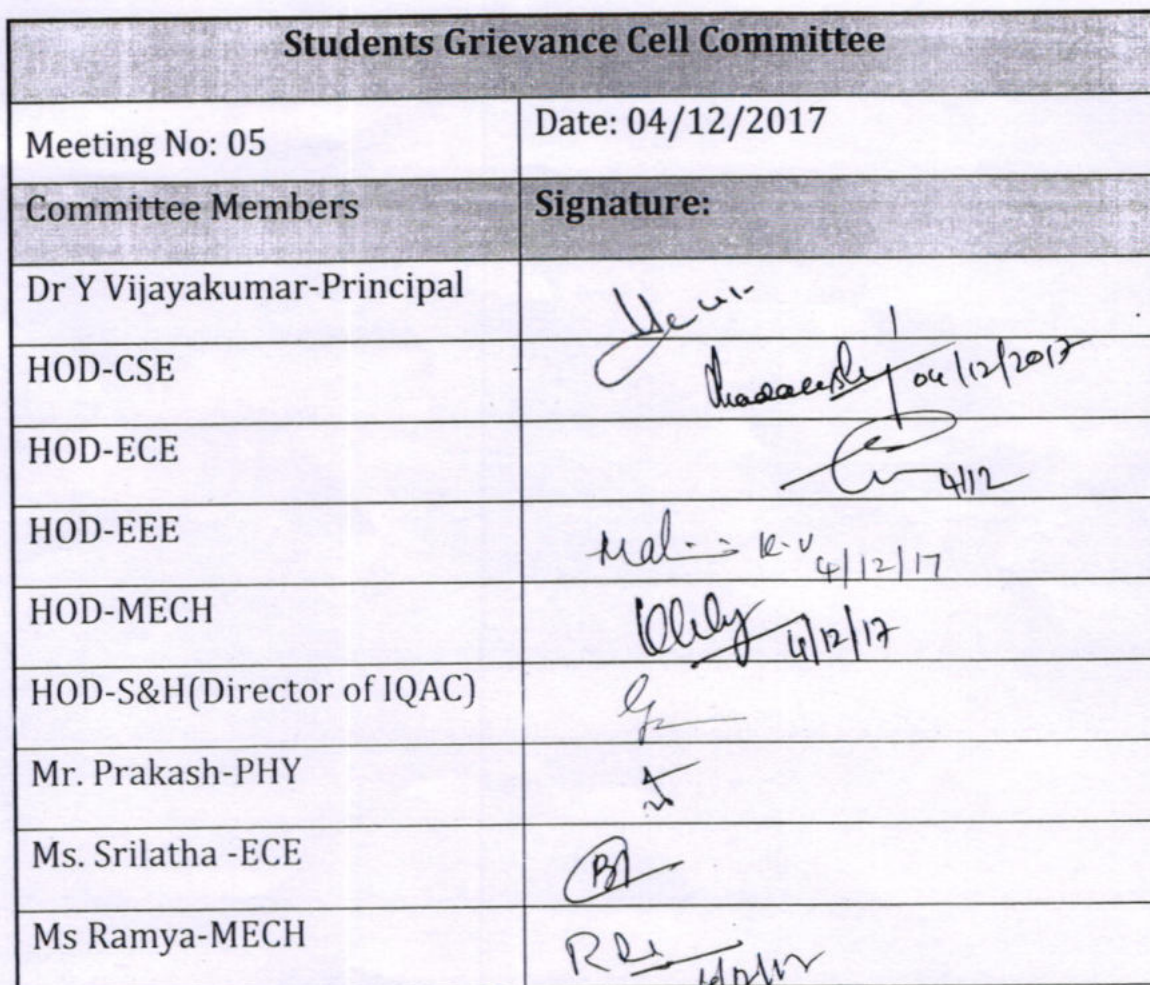 Students Grievance Cell Committee
Meeting No: 05 Date: 04/12/2017
Committee Members Signature:
Dr Y Vijayakumar-Principal
HOD-CSE 04/12/2017
HOD-ECE 4/12
HOD-EEE K.V 4/12/17
HOD-MECH 4/12/17
HOD-S&H(Director of IQAC)
Mr. Prakash-PHY
Ms. Srilatha -ECE
Ms Ramya-MECH